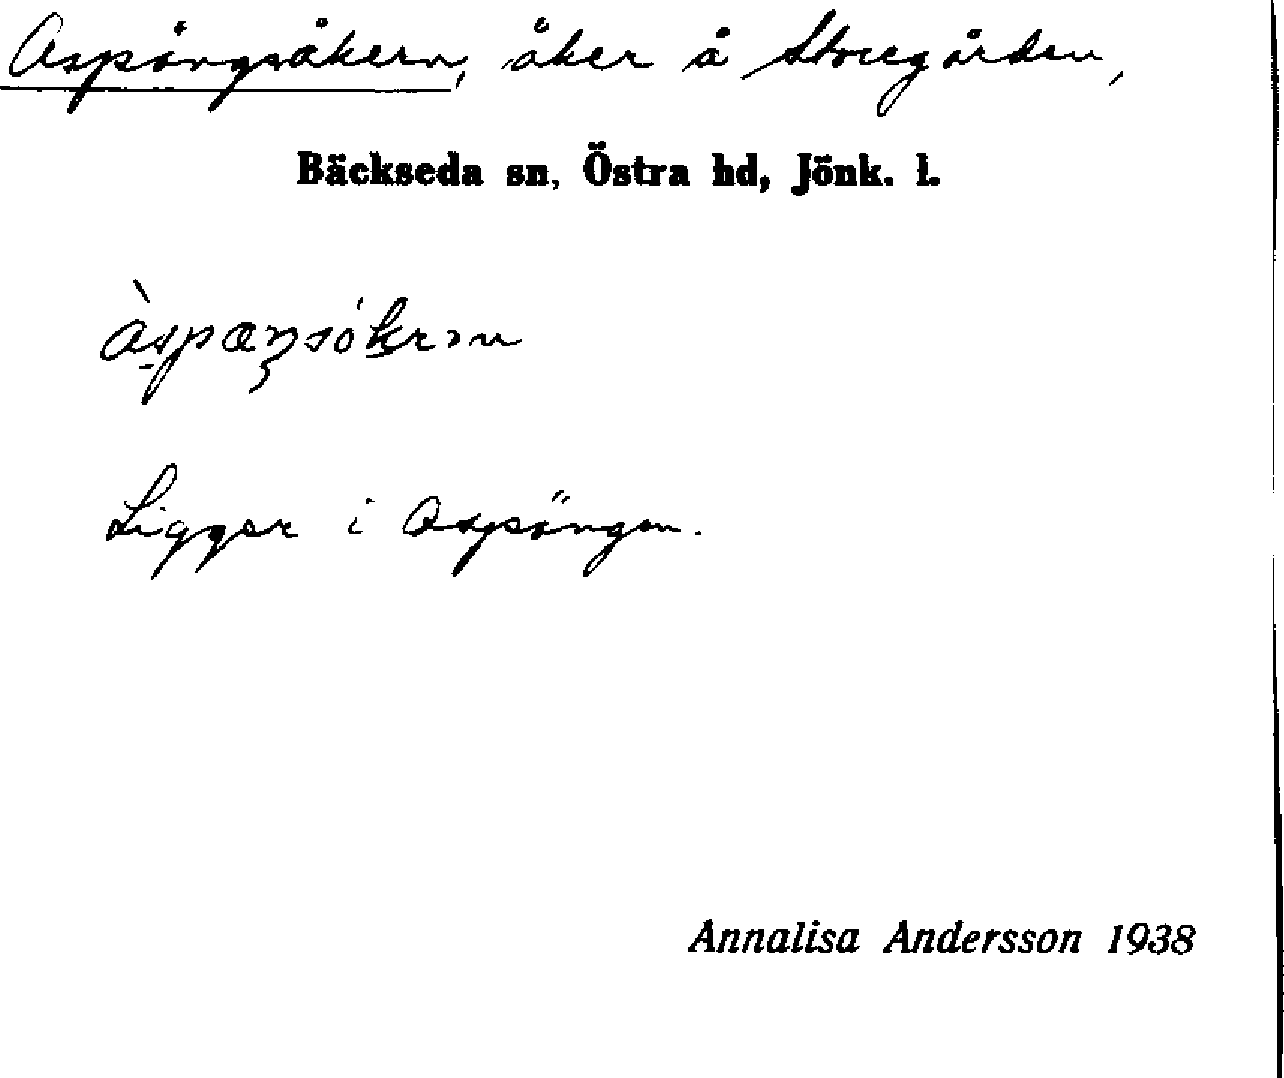 Aspängsåkern, åker å Storegården,
Bäckseda sn, Östra hd, Jönk. l.
Ligger i Aspängen.
Annalisa Andersson 1938